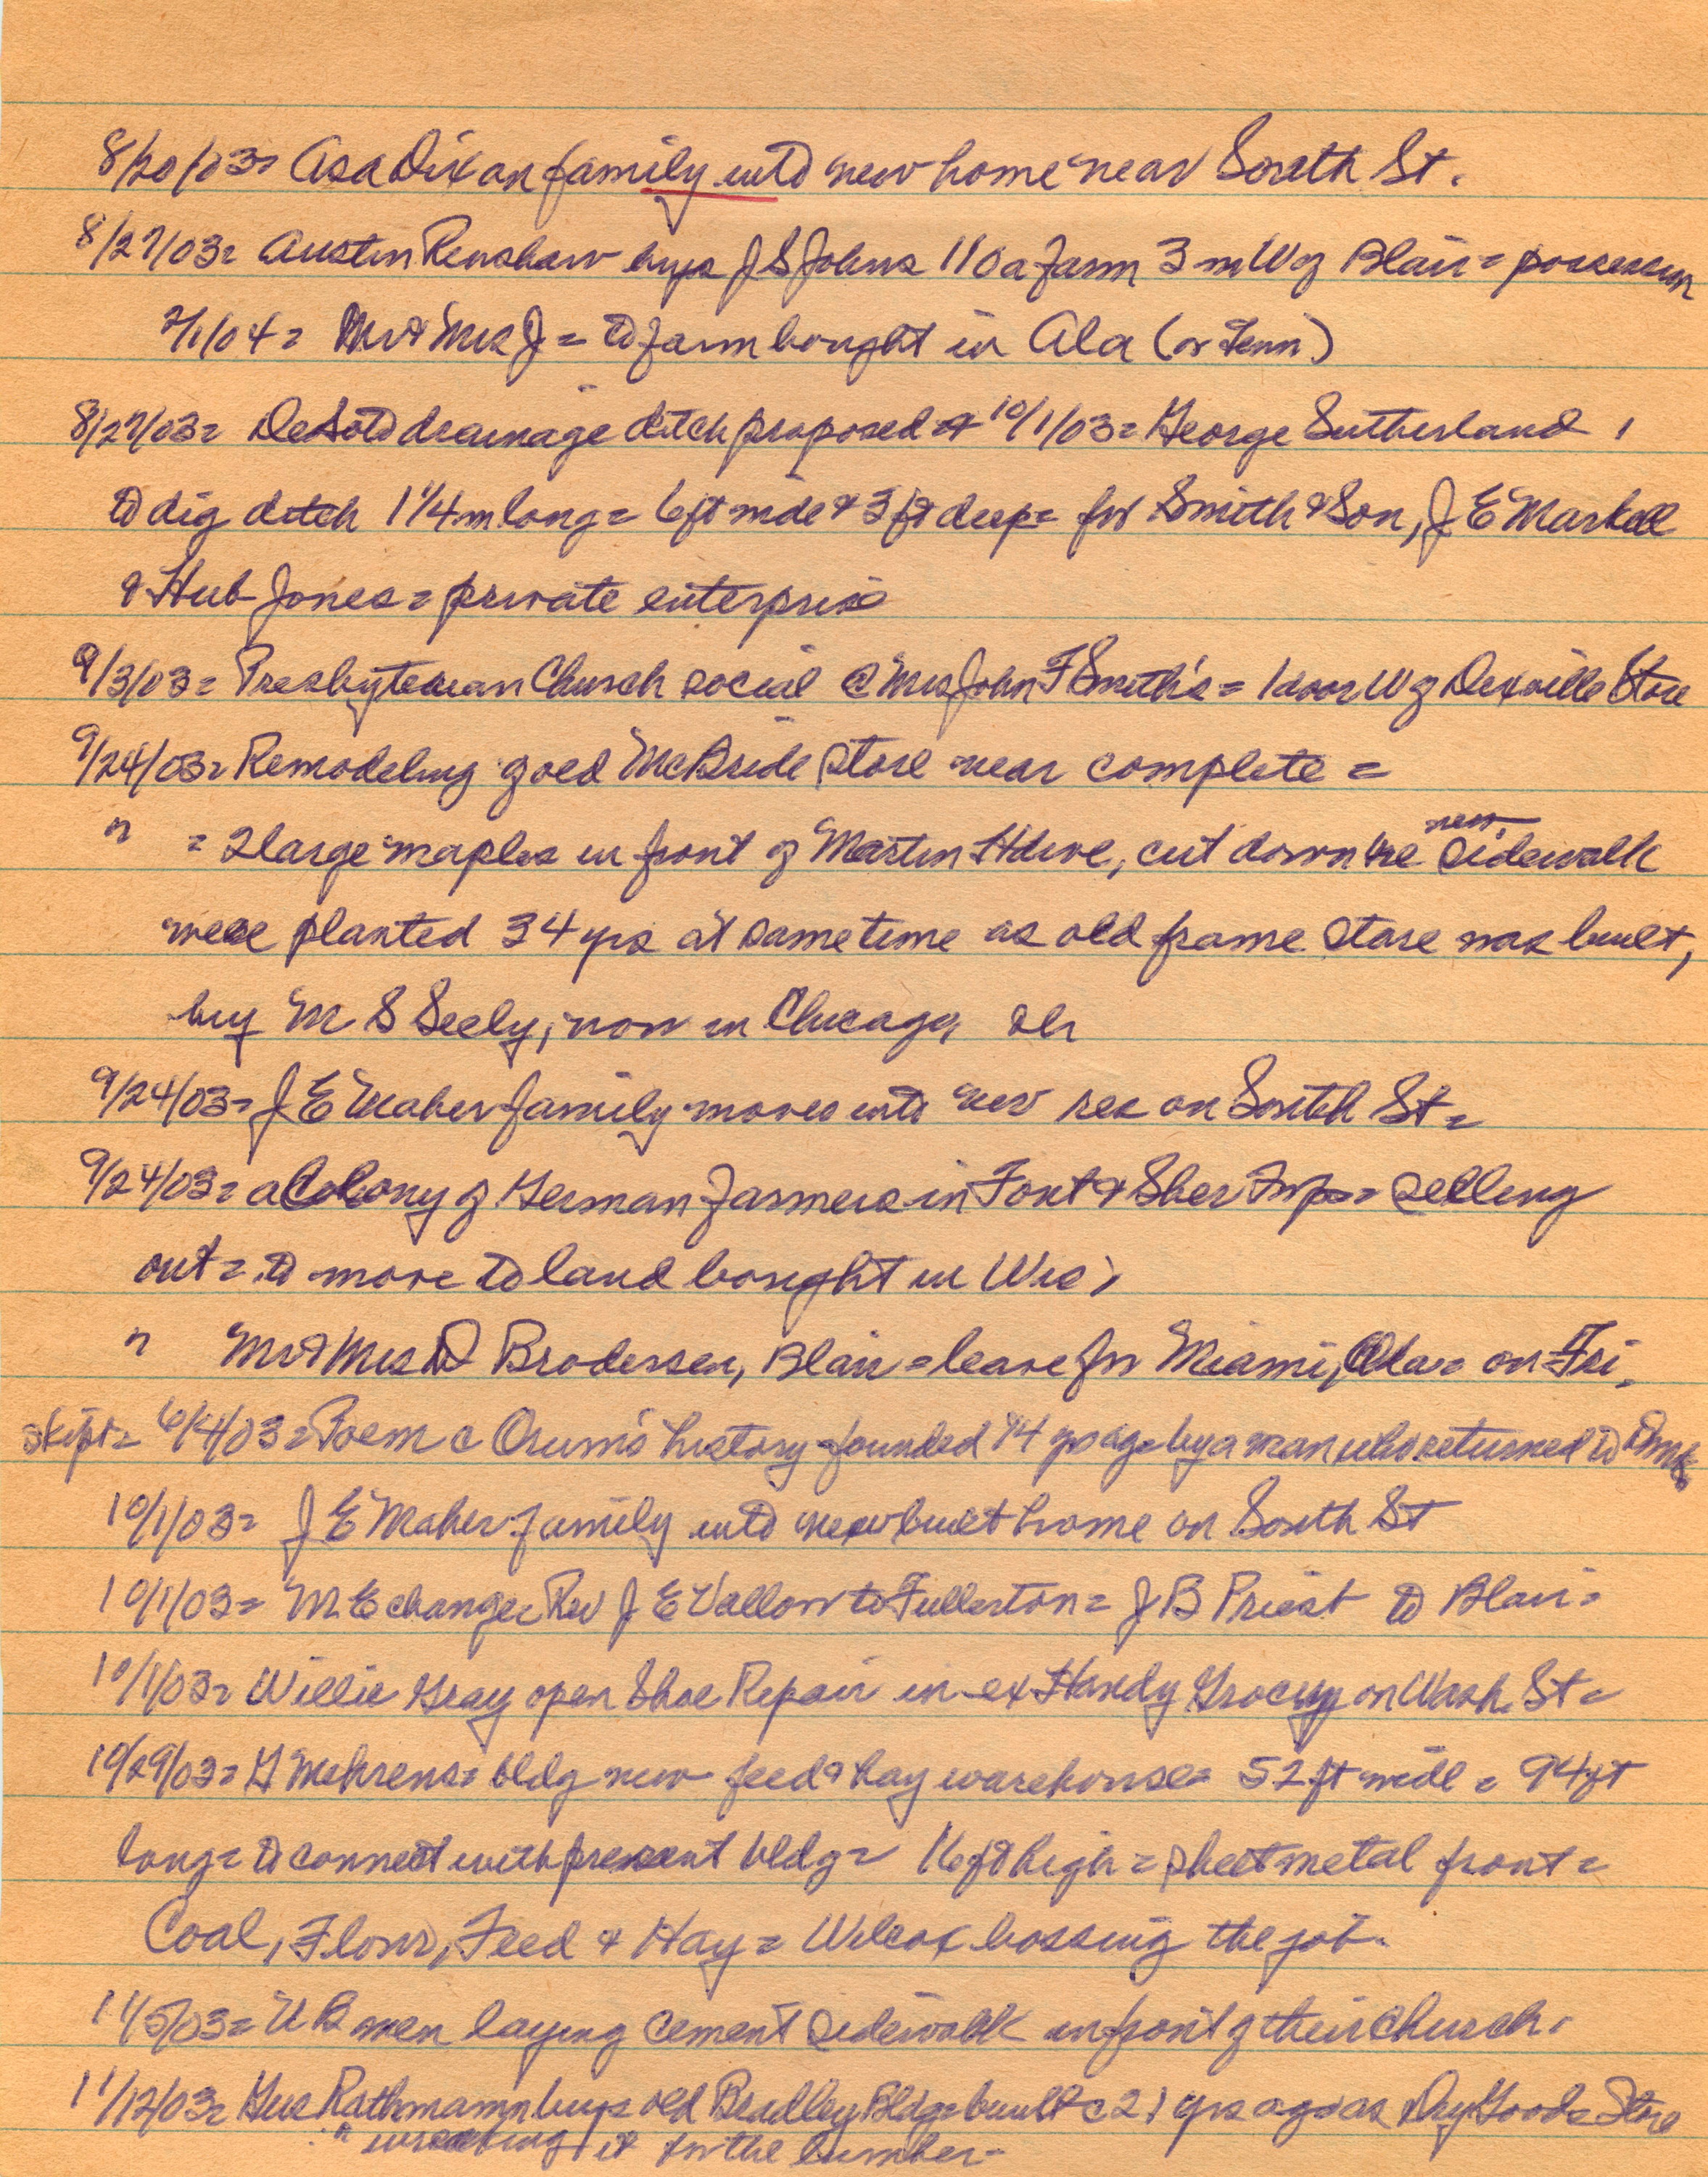 8/20/03= Asa Dixon family into new home near South St.
8/27/03= Austin Renshaw buys J S Johns 110a farm 3 m W of Blair = possession
3/1/04 = Mr & Mrs J = to farm bought in Ala (or Tenn)
8/27/03= DeSoto drainage ditch proposed 10/1/03= George Sutherland,
to dig ditch 1 1/4 m long = 6 ft wide & 3 ft deep = for Smith & Son, J E Markell
& Hub Jones = private enterprise
9/3/03 = Presbyterian Church social @ Mrs John F Smith's = 1 door W of Dexville Store
9/24/03= Remodeling of old McBride store near complete =
" = 2 large maples in front of Martin Hdwe, cut down re new sidewalk
were planted 34 yrs at same time as old frame store was built,
by M S Seely, now in Chicago
9/24/03= J E Maher family moves into new res on South St =
9/24/03= a Colony of German farmers in Font & Sher Twps = selling
out = to move to land bought in Wis,
" Mr & Mrs D Brodersen, Blair = leave for Miami, Okla = on Fri.
skipt = 6/4/03 = Poem c Orum's history founded 14 yrs ago by a man who returned to Dmk
10/1/03= J E Maher family into new built home on South St
10/1/03= M E changes Rev J E Vallow to Fullerton = J B Priest to Blair =
10/1/03= Willie Gray open Shoe Repair in ex Handy Grocery on Wash. St =
10/29/03= G Mehrens = bldg new feed & hay warehouse = 52 ft wide = 94 ft
long = to connect with present bldg = 16 ft high = sheet metal front =
Coal, Flour, Feed & Hay = Wilcox bossing the job.
11/5/03= U B men laying cement sidewalk in front of their church.
11/12/03= Gus Rathmann buys old Bradley Bldg = built c 21 yrs ago as Dry Goods Store
" wrecking it for the lumber =